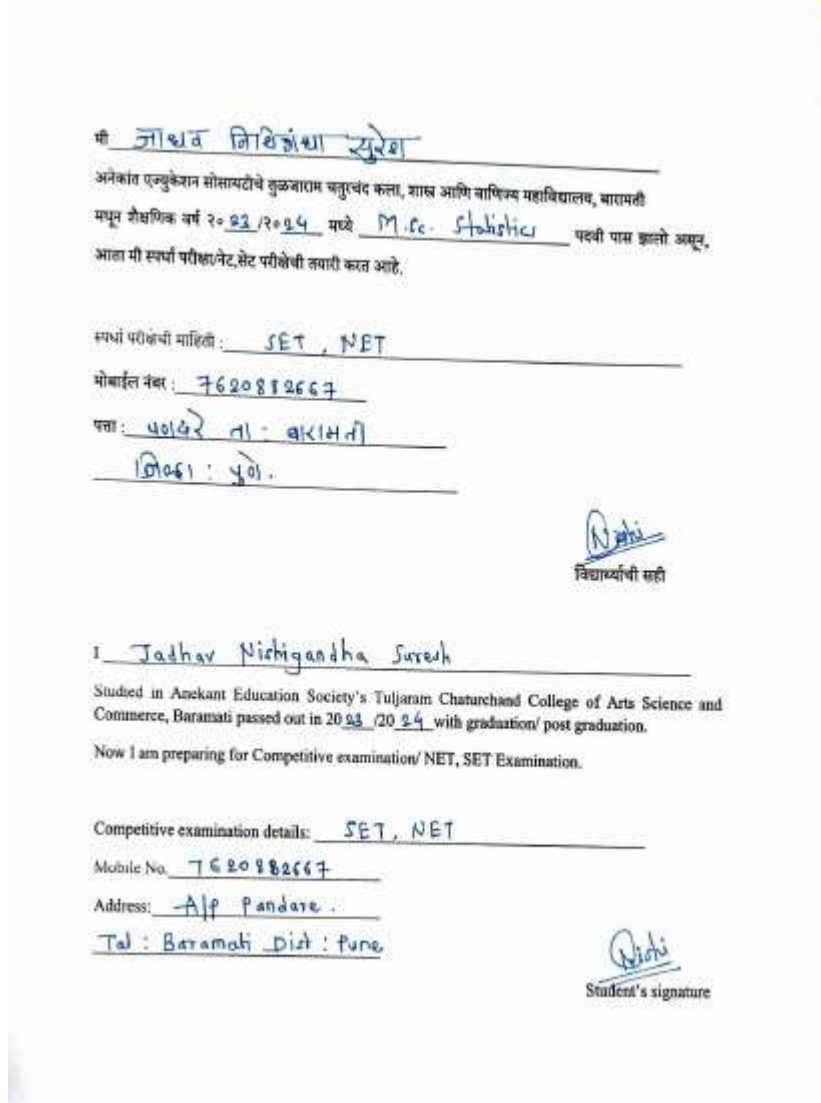 मी जाधव निशिगंधा सुरेश
अनेकांत एज्युकेशन सोसायटीचे तुळजाराम चतुरचंद कला, शास्त्र आणि वाणिज्य महाविद्यालय, बारामती
मधून शैक्षणिक वर्ष २०23/२०24 मध्ये M.Sc. Statistics पदवी पास झालो असून,
आता मी स्पर्धा परीक्षा/नेट,सेट परीक्षेची तयारी करत आहे.
स्पर्धा परीक्षेची माहिती : SET, NET
मोबाईल नंबर : 7620882667
पत्ता : पणदरे ता : बारामती
जिल्हा : पुणे.
Nishi
विद्यार्थ्याची सही
I Jadhav Nishigandha Suresh
Studied in Anekant Education Society's Tuljaram Chaturchand College of Arts Science and
Commerce, Baramati passed out in 2023/2024 with graduation/ post graduation.
Now I am preparing for Competitive examination/ NET, SET Examination.
Competitive examination details: SET, NET
Mobile No. 7620882667
Address: A/P Pandare.
Tal : Baramati Dist : Pune
Nishi
Student's signature